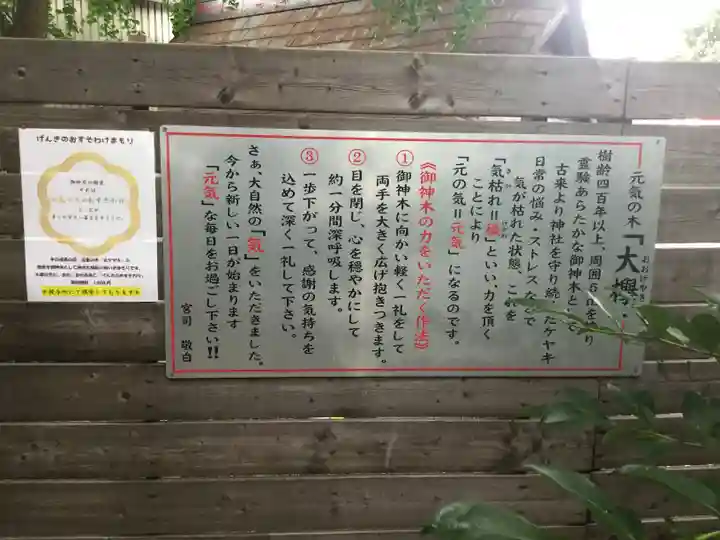 元気の木「大欅」
おおけやき
樹齢四百年以上、周囲6mを
霊験あらたかな御神木として
古来より神社を守り続けたケヤキ
日常の悩み・ストレスなどで
気が枯れた状態、これを
「気枯れ=穢」といい、力を頂く
きが けがれ
ことにより
「元の気=元気」になるのです。
《御神木の力をいただく作法》
① 御神木に向かい軽く一礼をして
両手を大きく広げ抱きつきます。
② 目を閉じ、心を穏やかにして
約一分間深呼吸します。
③ 一歩下がって、感謝の気持ちを
込めて深く一礼して下さい。
さぁ、大自然の「気」をいただきました。
今から新しい一日が始まります
「元気」な毎日をお過ごし下さい!!
宮司 敬白
げんきのおすそわけまもり